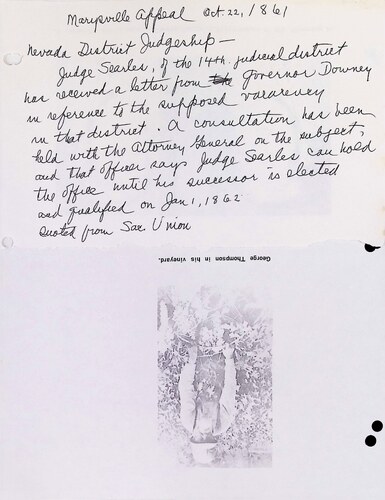 Marysville Appeal Oct. 22, 1861
Nevada District Judgership —
Judge Searles, of the 14th judicial district
has received a letter from the Governor Downey
in reference to the supposed vacarency
in that district. A consultation has been
held with the Attorney General on the subject,
and that officer says Judge Searles can hold
the office until his successor is elected
and qualified on Jan 1, 1862
Quoted from Sac. Union
George Thompson in his vineyard.